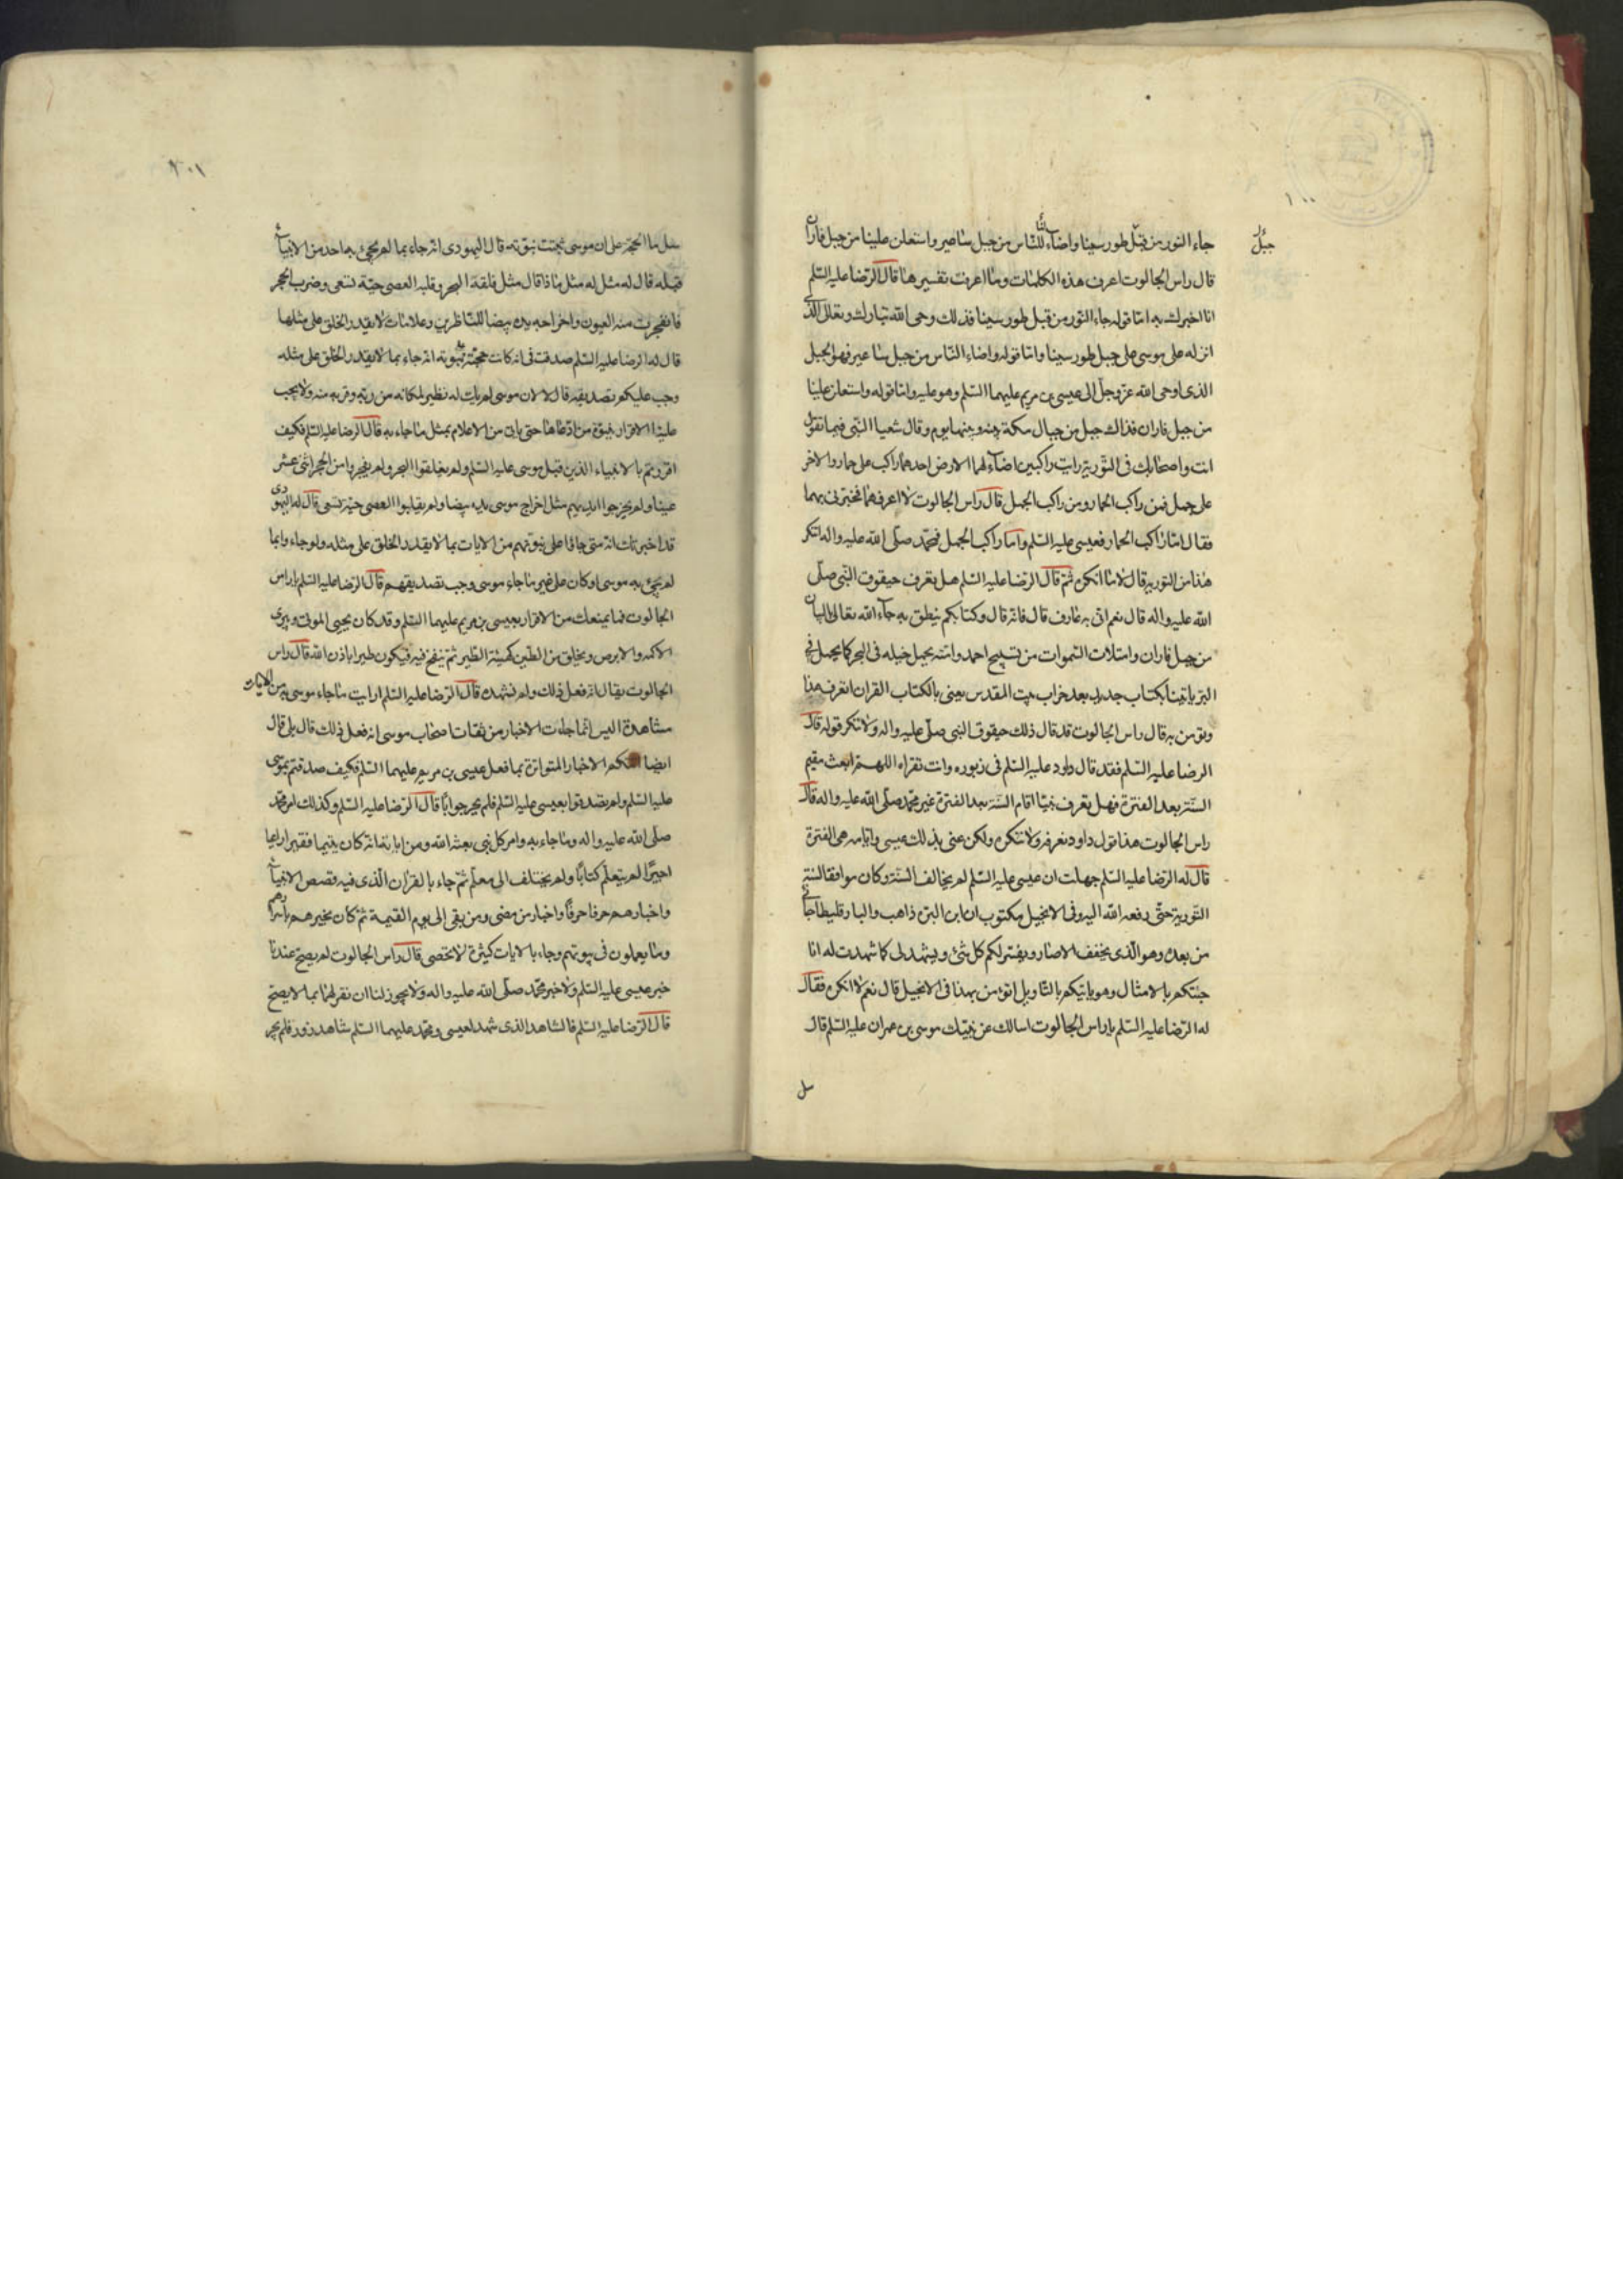 ١٠٠
جبل
جاء النور من قبل طور سينا واضاء للناس من جبل ساعير واستعلن علينا من جبل فاران
قال راس الجالوت اعرف هذه الكلمات وما اعرف تفسيرها قال الرضا عليه السلم
انا اخبرك به اما قوله جاء النور من قبل طور سينا فذلك وحى الله تبارك وتعالى الذى
انزله على موسى على جبل طور سينا واما قوله واضاء الناس من جبل ساعير فهو الجبل
الذى اوحى الله عز وجل الى عيسى بن مريم عليهما السلم وهو عليه واما قوله واستعلن علينا
من جبل فاران فذاك جبل من جبال مكة بينه وبينها يوم وقال شعيا النبى فيما تقول
انت واصحابك فى التورية رايت راكبين اضاء لهما الارض احدهما راكب على حمار والاخر
على جمل فمن راكب الحمار ومن راكب الجمل قال راس الجالوت لا اعرفهما فخبرنى بهما
فقال اما راكب الحمار فعيسى عليه السلم واما راكب الجمل فمحمد صلى الله عليه واله اتنكر
هذا من التورية قال لا ما انكره ثم قال الرضا عليه السلم هل تعرف حيقوق النبى صلى
الله عليه واله قال نعم انى به عارف قال فانه قال وكتابكم ينطق به جاء الله تعالى بالبيان
من جبل فاران وامتلات السموات من تسبيح احمد وامته يحمل خيله فى البحر كما يحمل فى
البر ياتينا بكتاب جديد بعد خراب بيت المقدس يعنى بالكتاب القران اتعرف هذا
وتؤمن به قال راس الجالوت قد قال ذلك حيقوق النبى صلى عليه واله ولا ننكر قوله قال
الرضا عليه السلم فقد قال داود عليه السلم فى زبوره وانت تقراه اللهم ابعث مقيم
السنة بعد الفترة فهل تعرف نبيا اقام السنة بعد الفترة غير محمد صلى الله عليه واله قال
راس الجالوت هذا قول داود نعرفه ولا ننكره ولكن عنى بذلك عيسى وايامه هى الفترة
قال له الرضا عليه السلم جهلت ان عيسى عليه السلم لم يخالف السنة وكان موافقا لسنة
التورية حتى رفعه الله اليه وفى الانجيل مكتوب ان ابن البرة ذاهب والبارقليطا جائى
من بعده وهو الذى يخفف الاصار ويفسر لكم كل شئ ويشهد لى كما شهدت له انا
جئتكم بالامثال وهو ياتيكم بالتاويل اتؤمن بهذا فى الانجيل قال نعم لا انكره فقال
له الرضا عليه السلم يا راس الجالوت اسالك عن نبيك موسى بن عمران عليه السلم قال
سل
٢٠١
سل ما الحجة على ان موسى ثبتت نبوته قال اليهودى انه جاء بما لم يجئ به احد من الانبياء
قبله قال له مثل ماذا قال مثل فلقة البحر وقلبه العصى حية تسعى وضرب الحجر
فانفجرت منه العيون واخراجه يده بيضا للناظرين وعلامات لا يقدر الخلق على مثلها
قال له الرضا عليه السلم صدقت فى انه كانت حجته على نبوته انه جاء بما لا يقدر الخلق على مثله
وجب عليكم تصديقه قال لا لان موسى لم يات له نظير لمكانه من ربه وقربه منه ولا يجب
علينا الاقرار بنبوة من ادعاها حتى ياتى من الاعلام بمثل ما جاء به قال الرضا عليه السلم فكيف
اقررتم بالانبياء الذين قبل موسى عليه السلم ولم يفلقوا البحر ولم يفجروا من الحجر اثنى عشر
عينا ولم يخرجوا ايديهم مثل اخراج موسى يده بيضا ولم يقلبوا العصى حية تسعى قال له اليهودى
قد اخبرتك انه متى جاؤا على نبوتهم من الايات بما لا يقدر الخلق على مثله ولو جاء وا بما
لم يجئ به موسى او كان على غير ما جاء موسى وجب تصديقهم قال الرضا عليه السلم يا راس
الجالوت فما يمنعك من الاقرار بعيسى بن مريم عليهما السلم وقد كان يحيى الموتى ويبرى
الاكمه والابرص ويخلق من الطين كهيئة الطير ثم ينفخ فيه فيكون طيرا باذن الله قال راس
الجالوت يقال انه فعل ذلك ولم نشهده قال الرضا عليه السلم ارايت ما جاء موسى به من الايات
مشاهدة اليس انما جاءت الاخبار من ثقات اصحاب موسى انه فعل ذلك قال بلى قال
ايضا اتتكم الاخبار المتواترة بما فعل عيسى بن مريم عليهما السلم فكيف صدقتم بموسى
عليه السلم ولم تصدقوا بعيسى عليه السلم فلم يحر جوابا قال الرضا عليه السلم وكذلك امر محمد
صلى الله عليه واله وما جاء به وامر كل نبى بعثه الله ومن اياته انه كان يتيما فقيرا راعيا
اجيرا لم يتعلم كتابا ولم يختلف الى معلم ثم جاء بالقران الذى فيه قصص الانبياء
واخبارهم حرفا حرفا واخبار من مضى ومن بقى الى يوم القيمة ثم كان يخبرهم باسرارهم
وما يعملون فى بيوتهم وجاء بالايات كثيرة لا تحصى قال راس الجالوت لم يصح عندنا
خبر عيسى عليه السلم ولا خبر محمد صلى الله عليه واله ولا يجوز لنا ان نقر لهما بما لا يصح
قال الرضا عليه السلم فالشاهد الذى شهد لعيسى ومحمد عليهما السلم شاهد زور فلم يحر